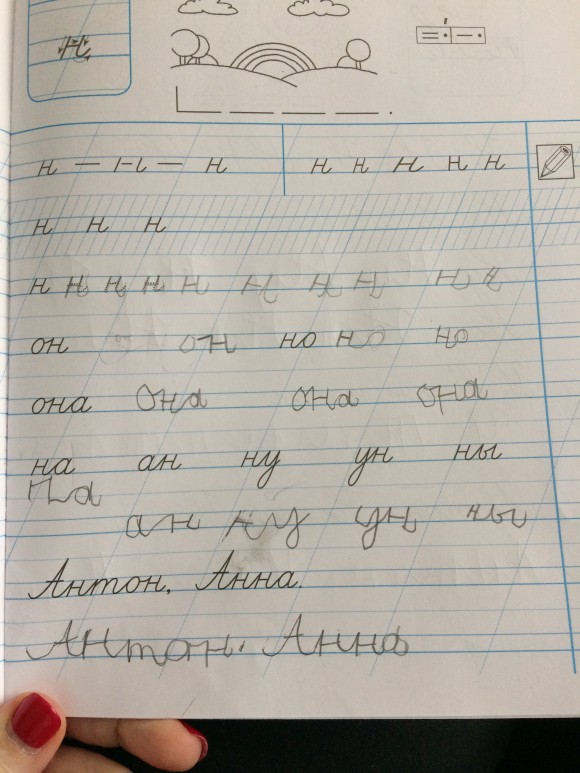 н
н н н н н н н н
н н н
н н н н н н н н н н
он он но но но
она она она она
на ан ну ун ны
на
ан ну ун ны
Антон. Анна.
Антон. Анна